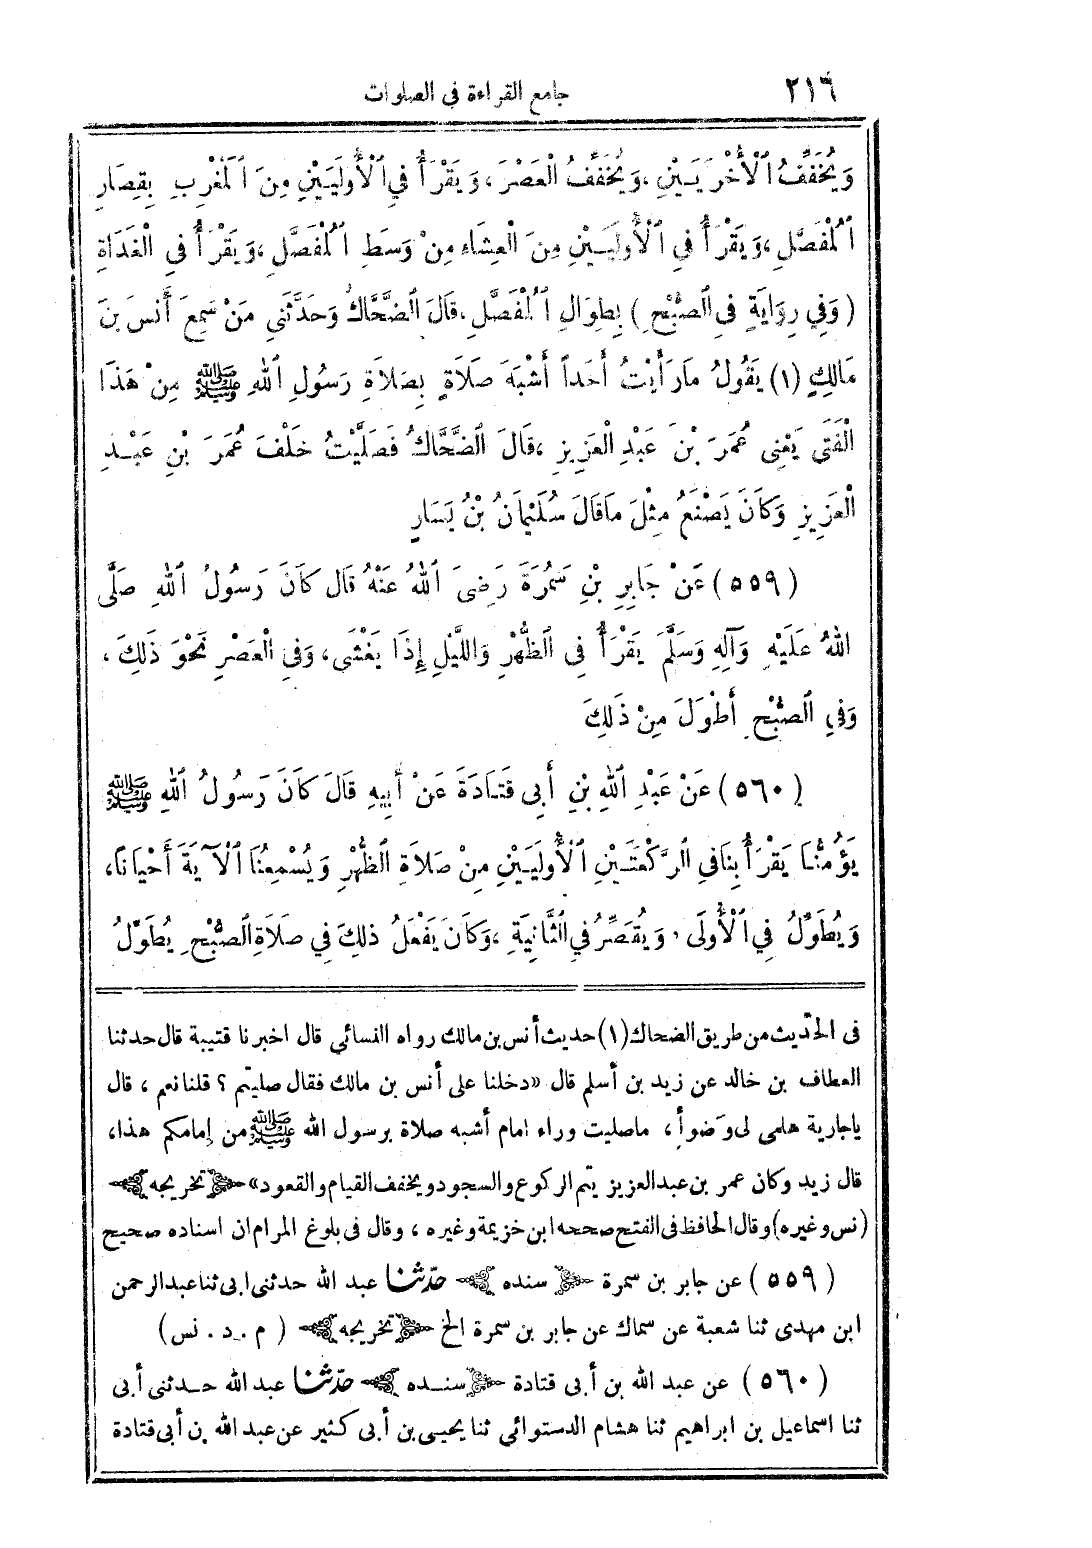 ٢١٦ جامع القراءة في الصلوات
وَيُخَفِّفُ ٱلْأُخْرَيَيْنِ، وَيُخَفِّفُ الْعَصْرَ، وَيَقْرَأُ فِي ٱلْأُولَيَيْنِ مِنَ ٱلْمَغْرِبِ بِقِصَارِ
ٱلْمُفَصَّلِ، وَيَقْرَأُ فِي ٱلْأُولَيَيْنِ مِنَ الْعِشَاءِ مِنْ وَسَطِ ٱلْمُفَصَّلِ، وَيَقْرَأُ فِي الْغَدَاةِ
(وَفِي رِوَايَةٍ فِي ٱلصُّبْحِ) بِطِوَالِ ٱلْمُفَصَّلِ، قَالَ ٱلضَّحَّاكُ وَحَدَّثَنِي مَنْ سَمِعَ أَنَسَ بْنَ
مَالِكٍ (١) يَقُولُ مَا رَأَيْتُ أَحَداً أَشْبَهَ صَلَاةٍ بِصَلَاةِ رَسُولِ ٱللهِ ﷺ مِنْ هَذَا
الْفَتَى يَعْنِي عُمَرَ بْنَ عَبْدِ الْعَزِيزِ، قَالَ ٱلضَّحَّاكُ فَصَلَّيْتُ خَلْفَ عُمَرَ بْنِ عَبْدِ
الْعَزِيزِ وَكَانَ يَصْنَعُ مِثْلَ مَا قَالَ سُلَيْمَانُ بْنُ يَسَارٍ
(٥٥٩) عَنْ جَابِرِ بْنِ سَمُرَةَ رَضِيَ ٱللهُ عَنْهُ قَالَ كَانَ رَسُولُ ٱللهِ صَلَّى
اللهُ عَلَيْهِ وَآلِهِ وَسَلَّمَ يَقْرَأُ فِي ٱلظُّهْرِ وَاللَّيْلِ إِذَا يَغْشَى، وَفِي الْعَصْرِ نَحْوَ ذَلِكَ،
وَفِي ٱلصُّبْحِ أَطْوَلَ مِنْ ذَلِكَ
(٥٦٠) عَنْ عَبْدِ ٱللهِ بْنِ أَبِي قَتَادَةَ عَنْ أَبِيهِ قَالَ كَانَ رَسُولُ ٱللهِ ﷺ
يَؤُمُّنَا يَقْرَأُ بِنَا فِي ٱلرَّكْعَتَيْنِ ٱلْأُولَيَيْنِ مِنْ صَلَاةِ ٱلظُّهْرِ وَيُسْمِعُنَا ٱلْآيَةَ أَحْيَانًا،
وَيُطَوِّلُ فِي ٱلْأُولَى، وَيُقَصِّرُ فِي ٱلثَّانِيَةِ، وَكَانَ يَفْعَلُ ذَلِكَ فِي صَلَاةِ ٱلصُّبْحِ يُطَوِّلُ
في الحديث من طريق الضحاك (١) حديث أنس بن مالك رواه النسائي قال اخبرنا قتيبة قال حدثنا
العطاف بن خالد عن زيد بن أسلم قال «دخلنا على أنس بن مالك فقال صليتم؟ قلنا نعم، قال
ياجارية هلمى لى وَضوأً، ماصليت وراء امام أشبه صلاة برسول الله ﷺ من إمامكم هذا،
قال زيد وكان عمر بن عبدالعزيز يتم الركوع والسجود ويخفف القيام والقعود» ﴿تخريجه﴾
(نس وغيره) وقال الحافظ في الفتح صححه ابن خزيمة وغيره، وقال في بلوغ المرام ان اسناده صحيح
(٥٥٩) عن جابر بن سمرة ﴿سنده﴾ حدّثنا عبد الله حدثنى ابى ثنا عبدالرحمن
ابن مهدى ثنا شعبة عن سماك عن جابر بن سمرة الخ ﴿تخريجه﴾ (م . د . نس)
(٥٦٠) عن عبد الله بن أبى قتادة ﴿سنده﴾ حدّثنا عبد الله حدثنى أبى
ثنا اسماعيل بن ابراهيم ثنا هشام الدستوائي ثنا يحيى بن أبى كثير عن عبد الله بن أبى قتادة